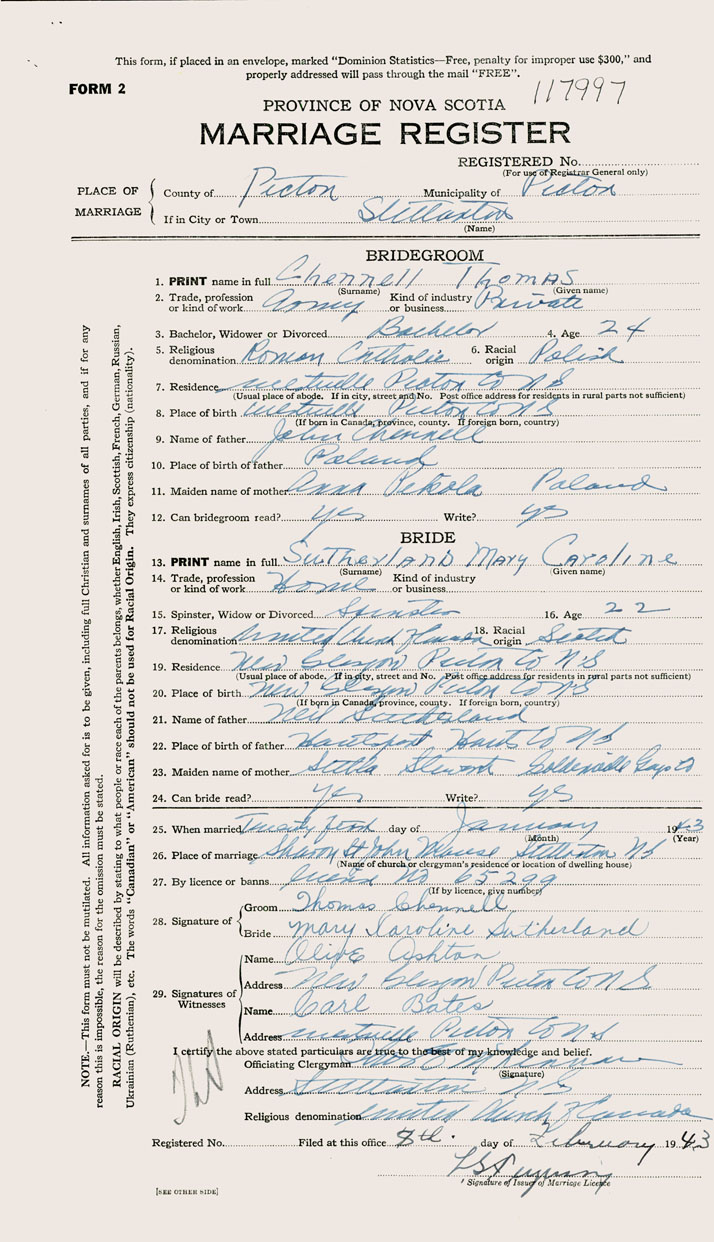 This form, if placed in an envelope, marked "Dominion Statistics—Free, penalty for improper use $300," and
properly addressed will pass through the mail "FREE".
FORM 2
117997
PROVINCE OF NOVA SCOTIA
MARRIAGE REGISTER
REGISTERED No.
(For use of Registrar General only)
PLACE OF MARRIAGE
County of Pictou Municipality of Pictou
If in City or Town Stellarton
(Name)
BRIDEGROOM
1. PRINT name in full Chennell Thomas
(Surname) (Given name)
2. Trade, profession or kind of work Army Kind of industry or business Private
3. Bachelor, Widower or Divorced Bachelor 4. Age 24
5. Religious denomination Roman Catholic 6. Racial origin Polish
7. Residence Westville Pictou Co N S
(Usual place of abode. If in city, street and No. Post office address for residents in rural parts not sufficient)
8. Place of birth Westville Pictou Co N S
(If born in Canada, province, county. If foreign born, country)
9. Name of father John Chennell
10. Place of birth of father Poland
11. Maiden name of mother Anna Poland
12. Can bridegroom read? yes Write? yes
BRIDE
13. PRINT name in full Sutherland Mary Caroline
(Surname) (Given name)
14. Trade, profession or kind of work Home Kind of industry or business
15. Spinster, Widow or Divorced Spinster 16. Age 22
17. Religious denomination United Church of Canada 18. Racial origin Scotch
19. Residence New Glasgow Pictou Co N S
(Usual place of abode. If in city, street and No. Post office address for residents in rural parts not sufficient)
20. Place of birth New Glasgow Pictou Co N S
(If born in Canada, province, county. If foreign born, country)
21. Name of father Neil Sutherland
22. Place of birth of father Hantsport Hants Co N S
23. Maiden name of mother Stella Stewart Goldenville Guys Co
24. Can bride read? yes Write? yes
25. When married Twenty day of January 1943
(Month) (Year)
26. Place of marriage Sharon St John Manse Stellarton N S
(Name of church or clergyman's residence or location of dwelling house)
27. By licence or banns licence No 65299
(If by licence, give number)
28. Signature of
Groom Thomas Chennell
Bride Mary Caroline Sutherland
29. Signatures of Witnesses
Name Olive Ashton
Address New Glasgow Pictou Co N S
Name Carl Bates
Address Westville Pictou Co N S
I certify the above stated particulars are true to the best of my knowledge and belief.
Officiating Clergyman
(Signature)
Address Stellarton N S
Religious denomination United Church of Canada
Registered No. Filed at this office 8th. day of February 1943
Signature of Issuer of Marriage Licence
[SEE OTHER SIDE]
NOTE.—This form must not be mutilated. All information asked for is to be given, including full Christian and surnames of all parties, and if for any
reason this is impossible, the reason for the omission must be stated.
RACIAL ORIGIN will be described by stating to what people or race each of the parents belongs, whether English, Irish, Scottish, French, German, Russian,
Ukrainian (Ruthenian), etc. The words "Canadian" or "American" should not be used for Racial Origin. They express citizenship (nationality).